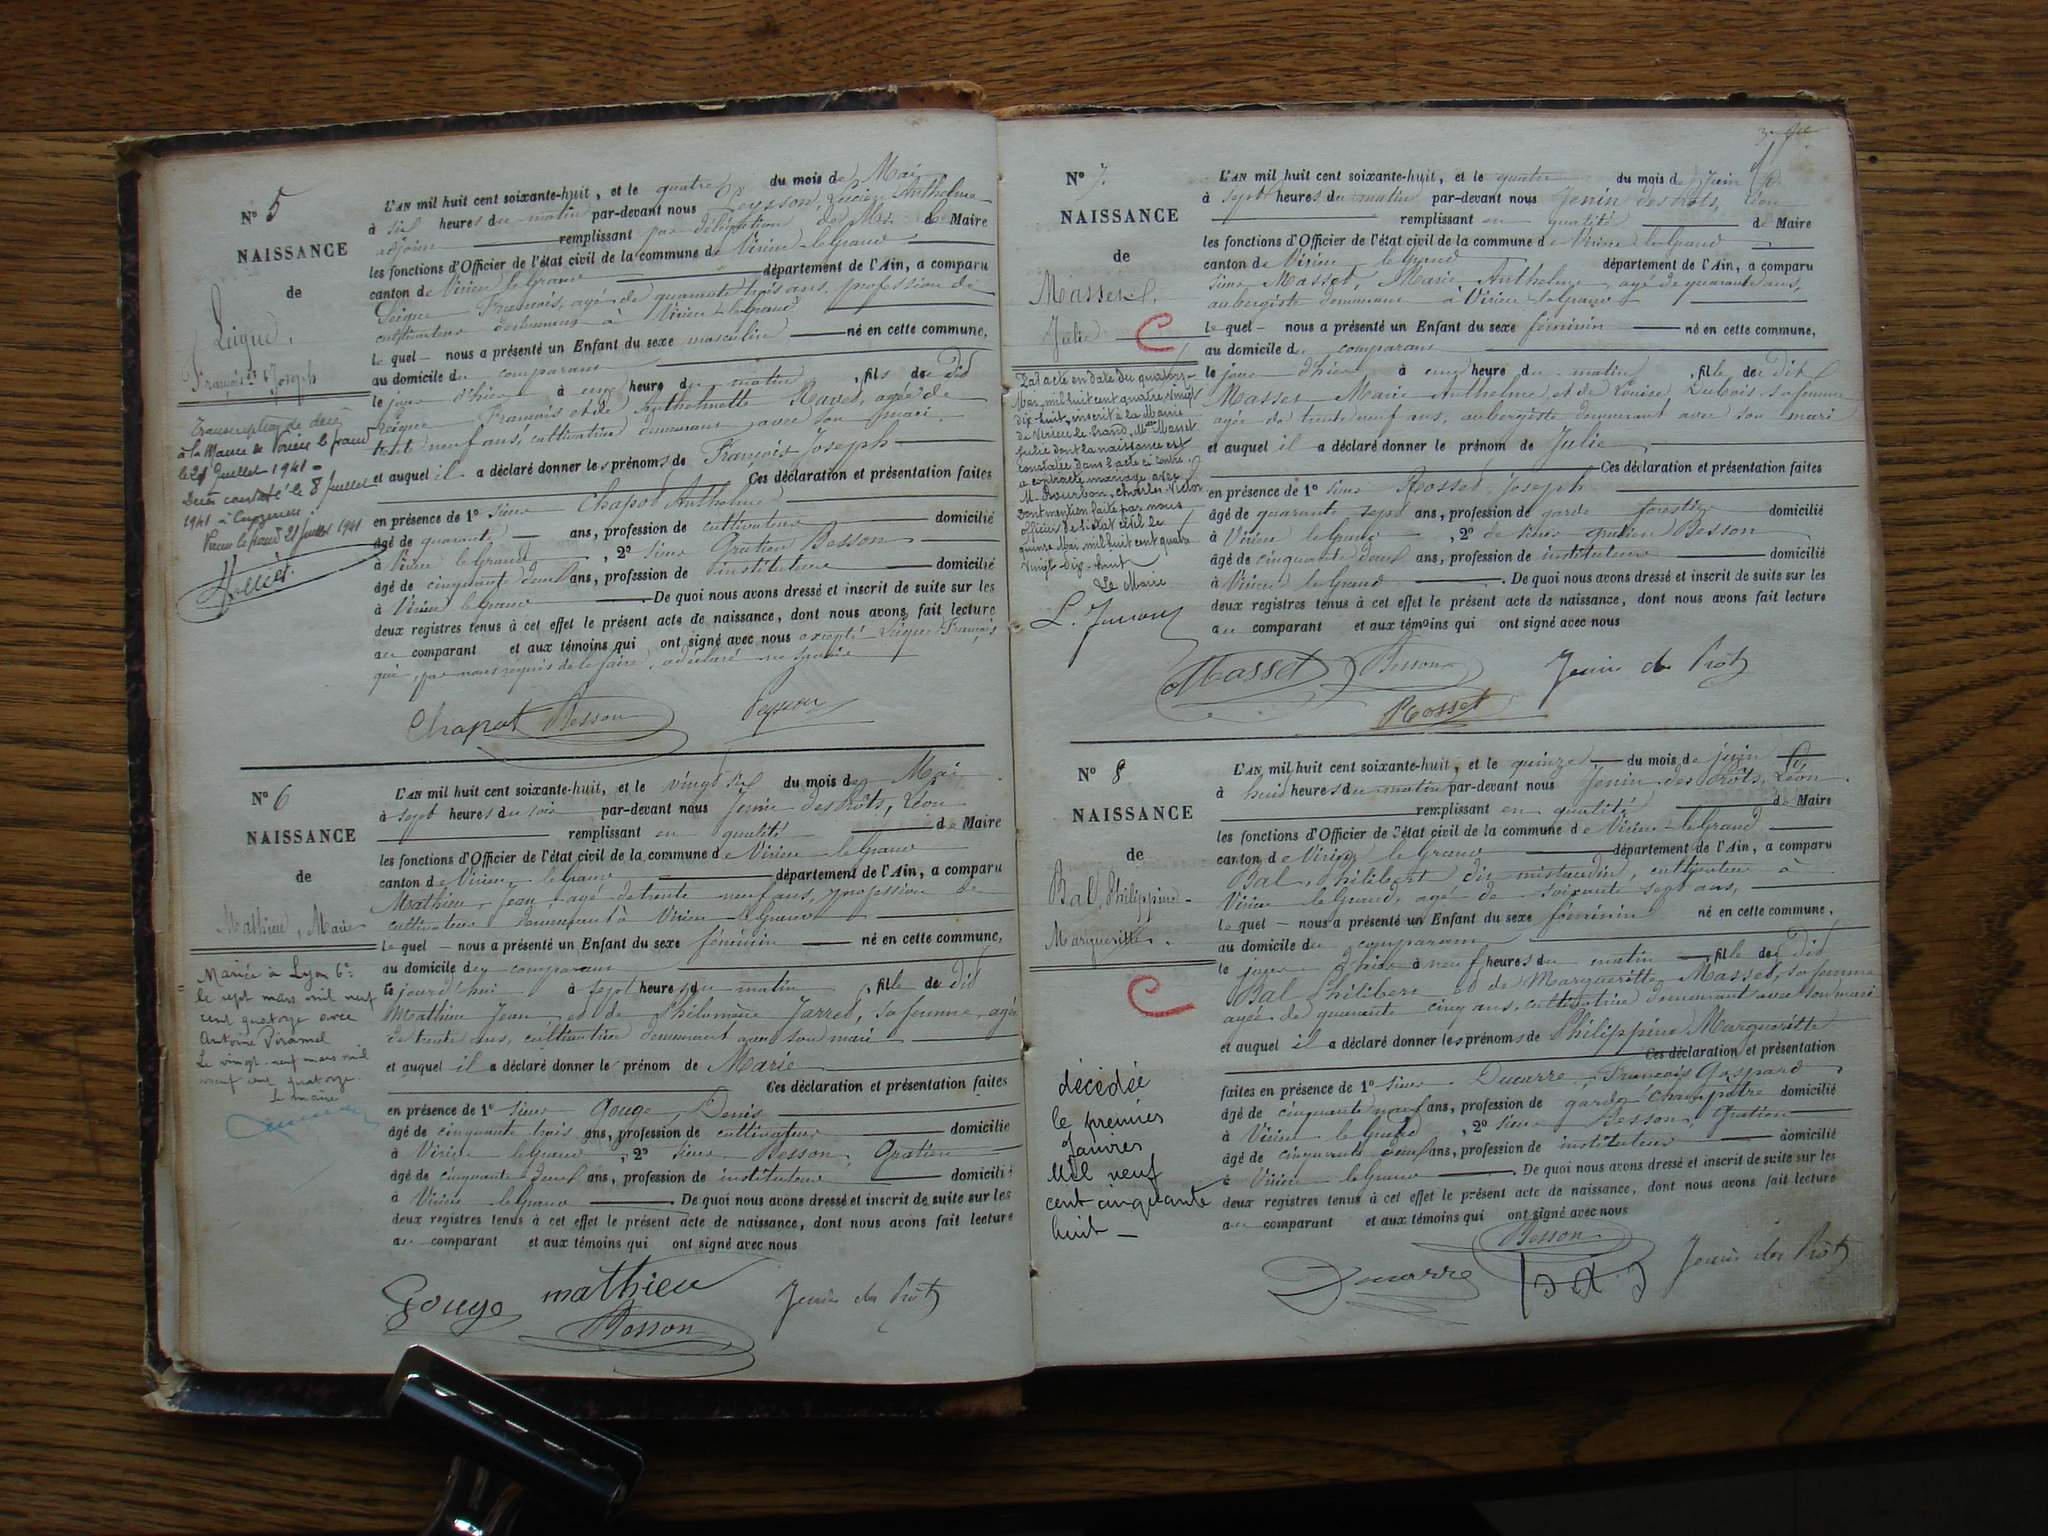 N° 5
NAISSANCE
de
Leigue,
François Joseph
Transcription de décès
à la Mairie de Virieu le grand
le 21 Juillet 1941 =
Décès constaté le 8 Juillet
1941 à
Virieu le grand 21 Juillet 1941
L'AN mil huit cent soixante-huit, et le quatre du mois de Mai
à six heures du matin par-devant nous Peysson, Lucien Anthelme
adjoint remplissant par délégation de Mr. le Maire
les fonctions d'Officier de l'état civil de la commune de Virieu-le-Grand
canton de Virieu le Grand département de l'Ain, a comparu
Leigue François, agé de quarante trois ans, profession de
cultivateur demeurant à Virieu-le-Grand
lequel nous a présenté un Enfant du sexe masculin né en cette commune,
au domicile du comparant
le jour d'hier à onze heure du matin, fils de dit
Leigue François et de Anthelmette Ravet, agée de
trente neuf ans, cultivatrice demeurant avec son mari
et auquel il a déclaré donner les prénoms de François Joseph
Ces déclaration et présentation faites
en présence de 1° sieur Chapot Anthelme
âgé de quarante ans, profession de cultivateur domicilié
à Virieu le Grand, 2° sieur Gratien Besson
âgé de cinquante deux ans, profession de instituteur domicilié
à Virieu le Grand. De quoi nous avons dressé et inscrit de suite sur les
deux registres tenus à cet effet le présent acte de naissance, dont nous avons fait lecture
au comparant et aux témoins qui ont signé avec nous excepté Leigue François
qui, par nous requis de le faire, a déclaré ne savoir
Chapot Besson Peysson
N° 6
NAISSANCE
de
Mathieu, Marie
Mariée à Lyon 6e
le sept mars mil neuf
cent quatorze avec
Antoine Piramel
Le vingt-neuf mars mil
neuf cent quatorze.
Le maire
L'AN mil huit cent soixante-huit, et le vingt six du mois de Mai
à sept heures du soir par-devant nous Jenin des Prôts, Léon
remplissant en qualité de Maire
les fonctions d'Officier de l'état civil de la commune de Virieu-le-Grand
canton de Virieu le Grand département de l'Ain, a comparu
Mathieu, Jean, agé de trente neuf ans, profession de
cultivateur demeurant à Virieu le Grand
lequel nous a présenté un Enfant du sexe féminin né en cette commune,
au domicile du comparant
le jourd'hui à sept heures du matin, fille de dit
Mathieu Jean et de Philomène Jarret, sa femme, agée
de trente ans, cultivatrice demeurant avec son mari
et auquel il a déclaré donner le prénom de Marie
Ces déclaration et présentation faites
en présence de 1° sieur Gouge, Denis
âgé de cinquante trois ans, profession de cultivateur domicilié
à Virieu le Grand, 2° sieur Besson, Gratien
âgé de cinquante deux ans, profession de instituteur domicilié
à Virieu le Grand. De quoi nous avons dressé et inscrit de suite sur les
deux registres tenus à cet effet le présent acte de naissance, dont nous avons fait lecture
au comparant et aux témoins qui ont signé avec nous
Gouge mathieu Jenin des Prôts
Besson
N° 7.
NAISSANCE
de
Masset,
Julie
C
Par acte en date du quatorze
Mai, mil huit cent quatre-vingt
dix-huit, inscrit à la Mairie
de Virieu le Grand, Mlle Masset
Julie dont la naissance est
constatée dans l'acte ci contre
a contracté mariage avec
M. Bourbon, Charles Victor
Dont mention faite par nous
officier de l'état civil le
quinze Mai mil huit cent quatre
vingt-dix-huit
Le Maire
L'AN mil huit cent soixante-huit, et le quatre du mois de Juin
à sept heures du matin par-devant nous Jenin des Prôts, Léon
remplissant en qualité de Maire
les fonctions d'Officier de l'état civil de la commune de Virieu le Grand
canton de Virieu le Grand département de l'Ain, a comparu
sieur Masset, Marie Anthelme, agé de quarante ans,
aubergiste demeurant à Virieu-le-Grand
lequel nous a présenté un Enfant du sexe féminin né en cette commune,
au domicile du comparant
le jour d'hier à onze heure du matin, fille de dit
Masset Marie Anthelme et de Louise Dubois sa femme
agée de trente neuf ans, aubergiste demeurant avec son mari
et auquel il a déclaré donner le prénom de Julie
Ces déclaration et présentation faites
en présence de 1° sieur Rosset, Joseph
âgé de quarante sept ans, profession de garde forestier domicilié
à Virieu le Grand, 2° de sieur Gratien Besson
âgé de cinquante deux ans, profession de instituteur domicilié
à Virieu le Grand. De quoi nous avons dressé et inscrit de suite sur les
deux registres tenus à cet effet le présent acte de naissance, dont nous avons fait lecture
au comparant et aux témoins qui ont signé avec nous
Masset Besson Jenin des Prôts
Rosset
N° 8
NAISSANCE
de
Bal, Philippine
Marguerite.
C
décédée
le premier
Janvier
Mil neuf
cent cinquante
huit -
L'AN mil huit cent soixante-huit, et le quinze du mois de juin
à huit heures du matin par-devant nous Jenin des Prôts, Léon
remplissant en qualité de Maire
les fonctions d'Officier de l'état civil de la commune de Virieu-le-Grand
canton de Virieu le Grand département de l'Ain, a comparu
Bal, Philibert dit mistaudin, cultivateur à
Virieu le Grand, agé de soixante sept ans,
lequel nous a présenté un Enfant du sexe féminin né en cette commune,
au domicile du comparant
le jour d'hier à neuf heures du matin, fille de dit
Bal Philibert et de Margueritte Masset, sa femme
agée de quarante cinq ans, cultivatrice demeurant avec son mari
et auquel il a déclaré donner les prénoms de Philippine Margueritte
Ces déclaration et présentation
faites en présence de 1° sieur Ducarre, François Gaspard
âgé de cinquante neuf ans, profession de garde Champêtre domicilié
à Virieu le Grand, 2° sieur Besson, Gratien
âgé de cinquante deux ans, profession de instituteur domicilié
à Virieu le Grand. De quoi nous avons dressé et inscrit de suite sur les
deux registres tenus à cet effet le présent acte de naissance, dont nous avons fait lecture
au comparant et aux témoins qui ont signé avec nous
Besson
Ducarre bal Jenin des Prôts